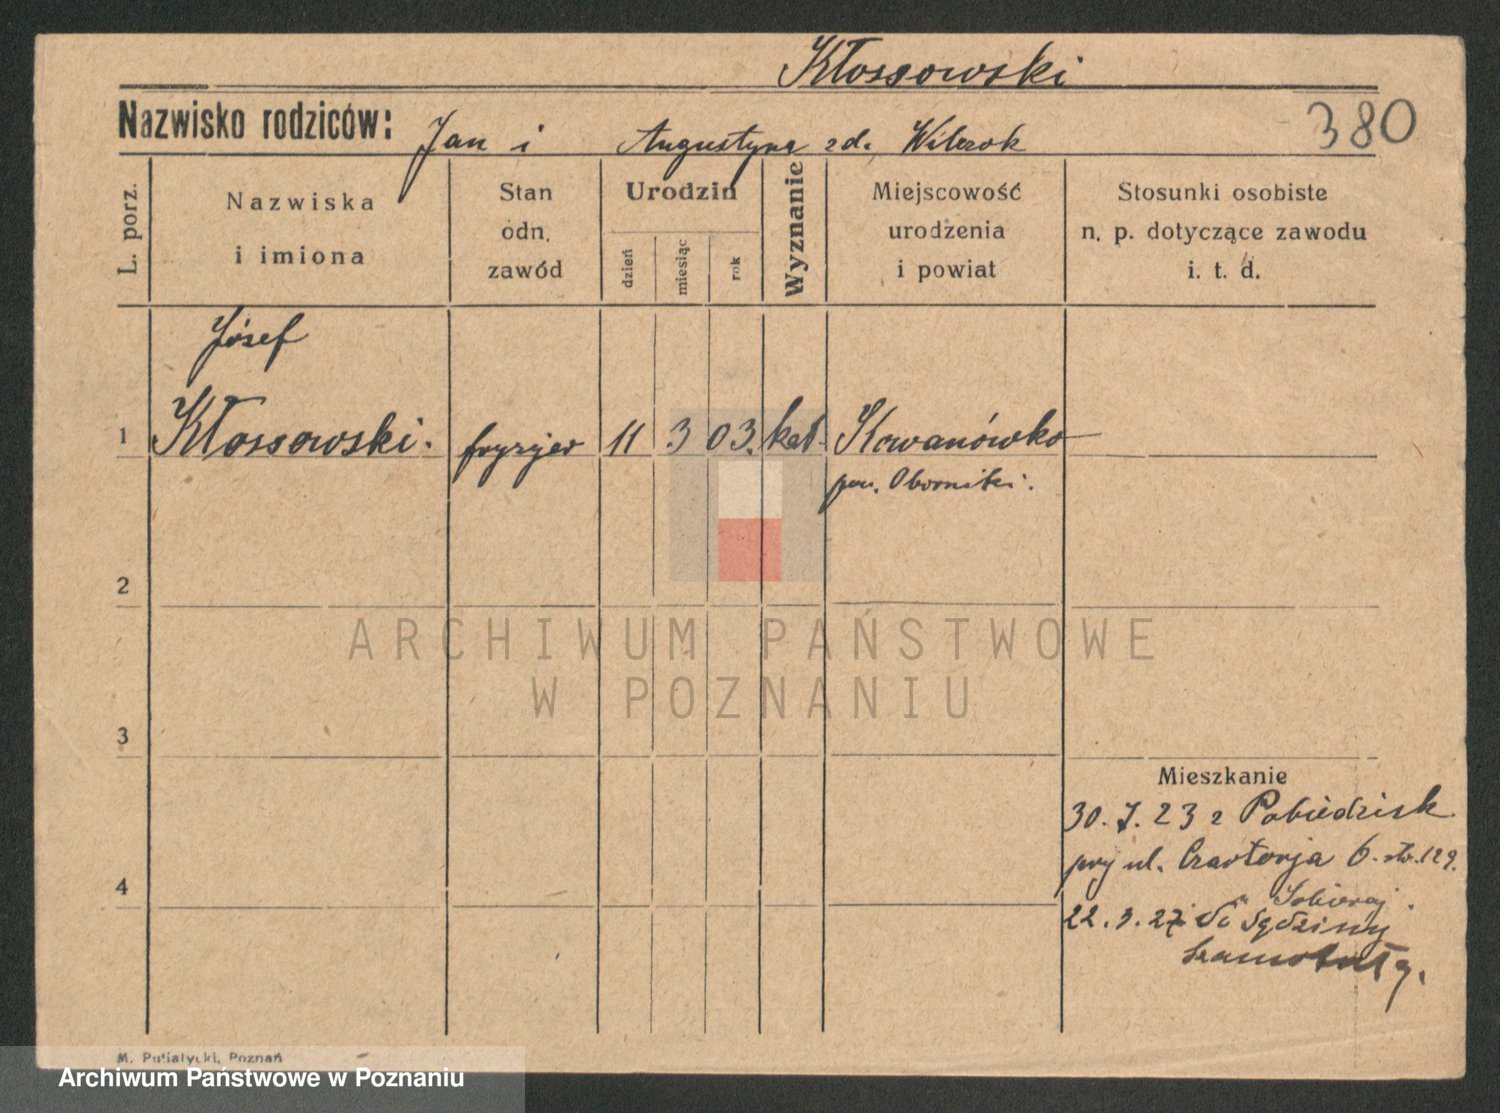 Kłossowski
Nazwisko rodziców: Jan i Augustyna zd. Wilczok
380
L. porz.
Nazwiska
i imiona
Stan
odn.
zawód
Urodzin
dzień
miesiąc
rok
Wyznanie
Miejscowość
urodzenia
i powiat
Stosunki osobiste
n. p. dotyczące zawodu
i. t. d.
Józef
1 Kłossowski. fryzjer 11 3 03. kat. Kowanówko
pow. Oborniki.
2
ARCHIWUM PAŃSTWOWE
W POZNANIU
3
Mieszkanie
30. 7. 23 z Pobiedzisk
przy ul. Czartorja 6. str. 129.
4
u Sobieraj.
22. 3. 27. do Sędziny
M. Putiatycki, Poznań
Archiwum Państwowe w Poznaniu